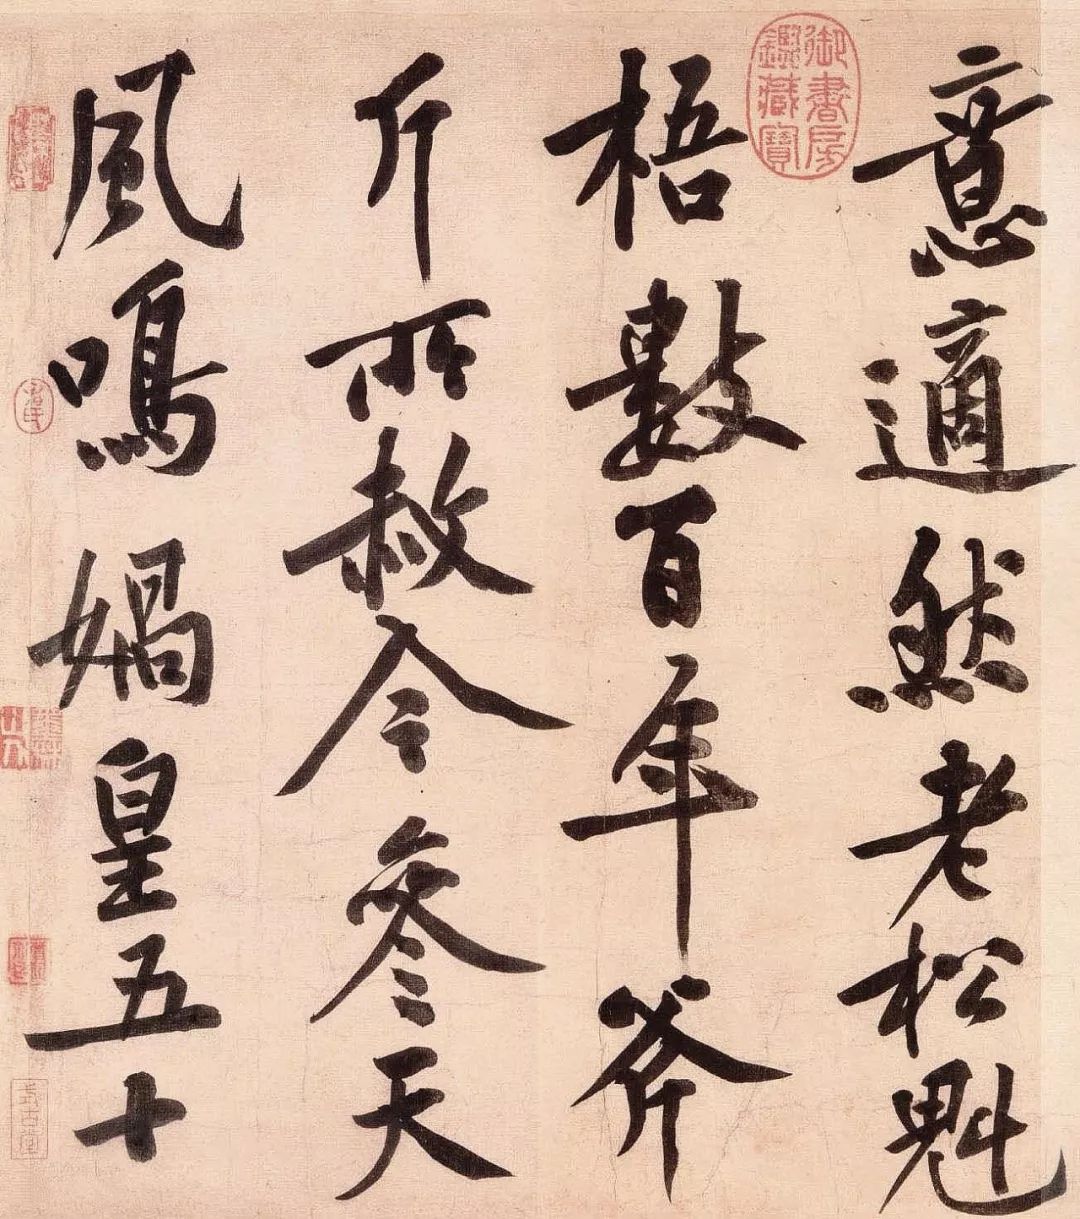 意適然老松魁
梧數百年斧
斤所赦今參天
風鳴媧皇五十
御書房
鑑藏寶
式古堂